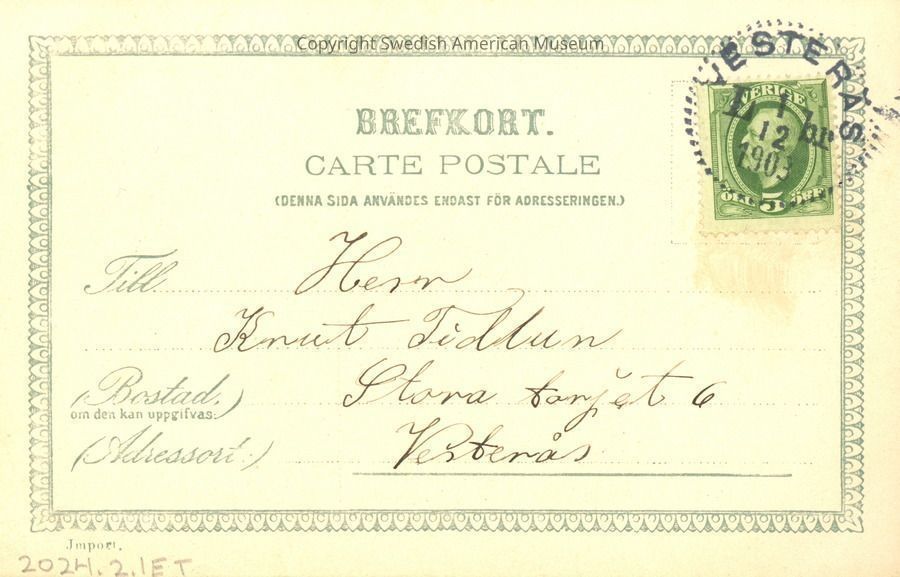 Copyright Swedish American Museum
VESTERÅS
SVERIGE
12
1903
5 ÖRE
BREFKORT.
CARTE POSTALE
(DENNA SIDA ANVÄNDES ENDAST FÖR ADRESSERINGEN.)
Till Herrn
Knut Tidlun
(Bostad,) Stora torjet 6
om den kan uppgifvas:
(Adressort:) Vesterås
Import.
2024.2.1ET